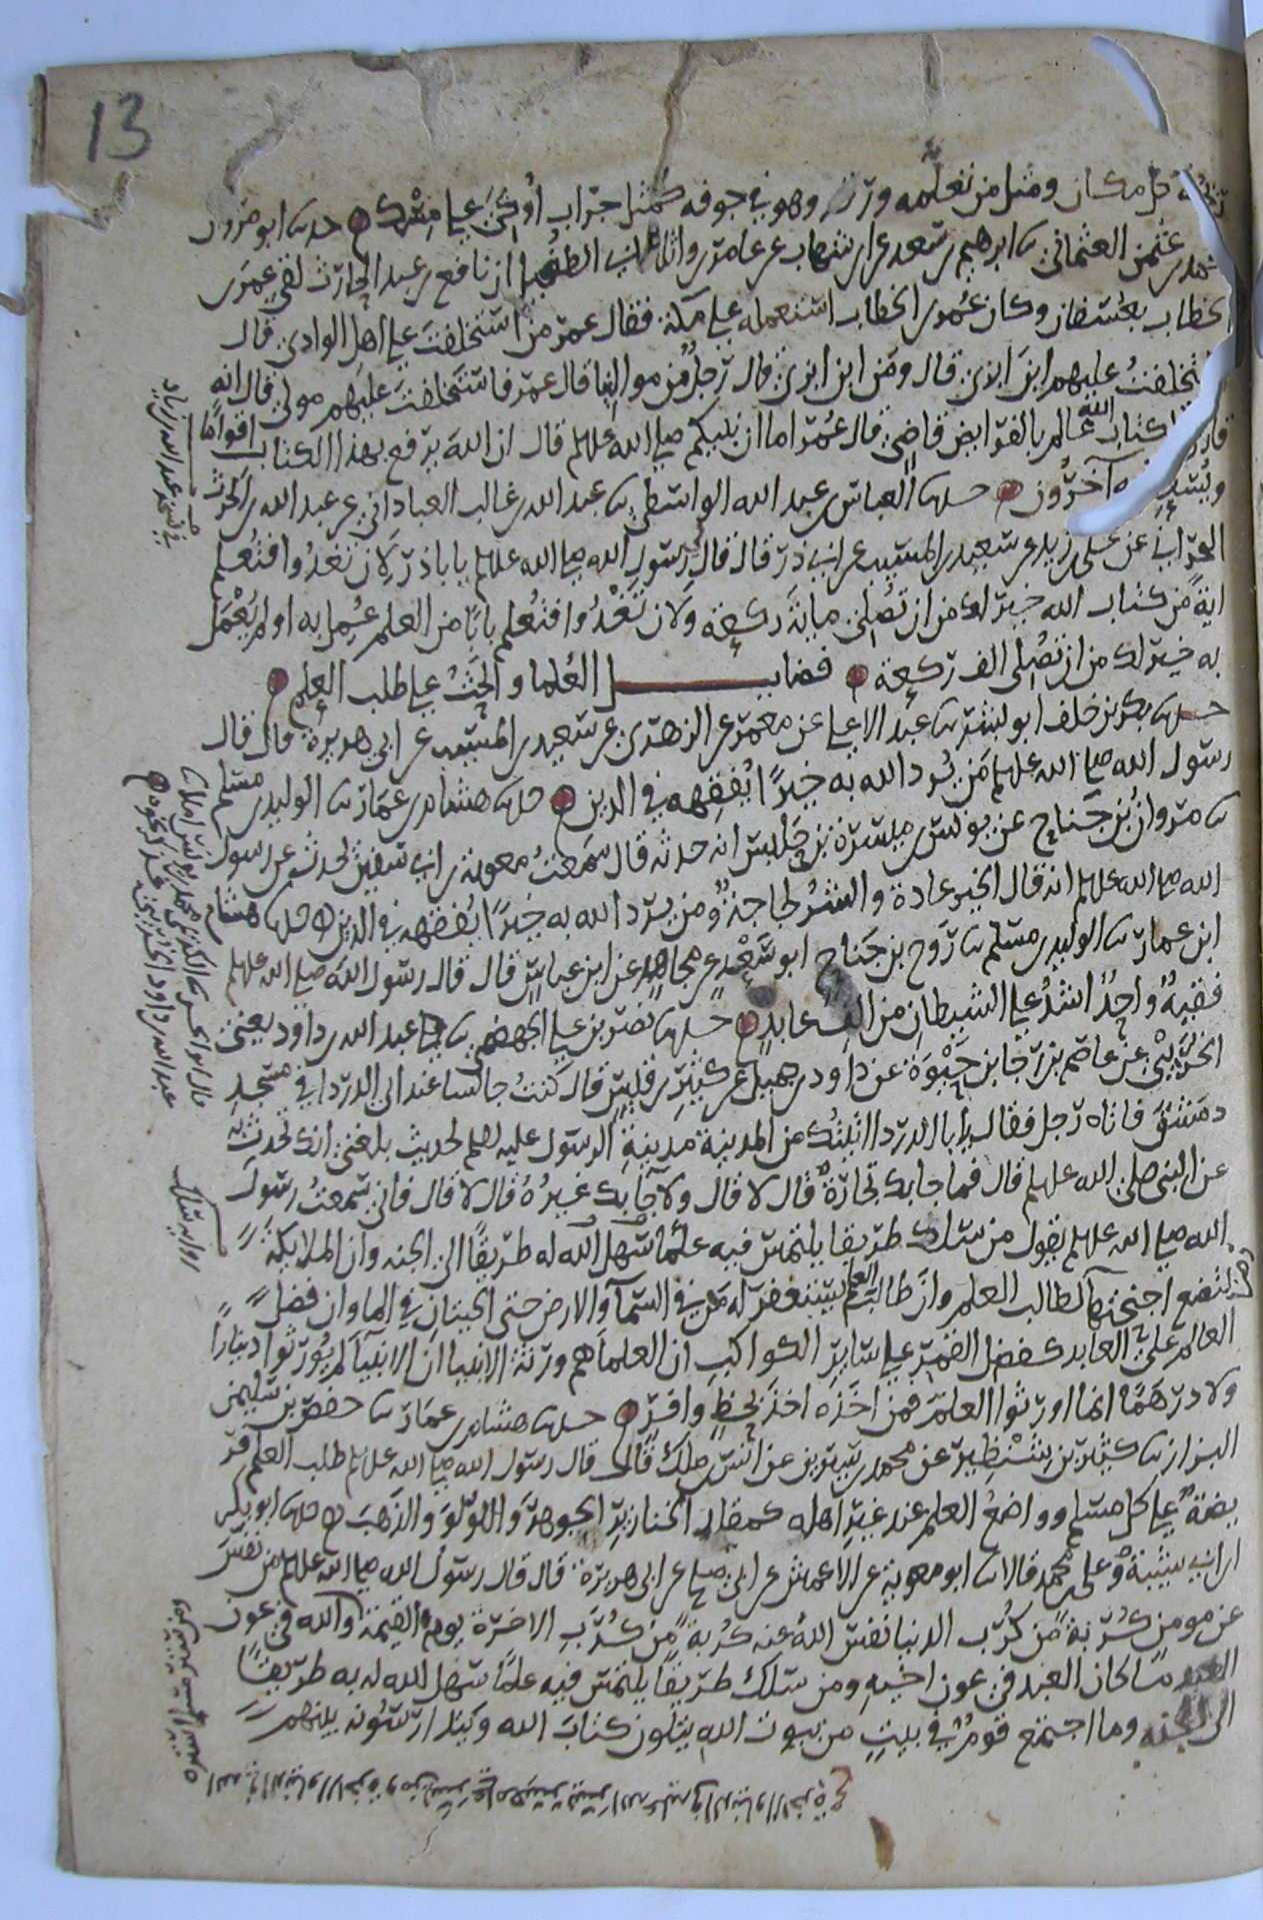 13
ريحه كل مكان ومثل من تعلمه ورقد وهو في جوفه كمثل جراب أوكي على مسك حدثنا ابو مروان
محمد بن عثمن العثماني ثنا ابرهيم بن سعد عن ابن شهاب عن عامر بن واثلة ابي الطفيل ان نافع بن عبد الحارث لقي عمر بن
الخطاب بعسفان وكان عمر بن الخطاب استعمله على مكة فقال عمر من استخلفت على اهل الوادي قال
استخلفت عليهم ابن ابزى قال ومن ابن ابزى قال رجل من موالينا قال عمر فاستخلفت عليهم مولى قال انه
قارئ لكتاب الله عالم بالفرايض قاضي قال عمر اما ان نبيكم صلى الله عليه وسلم قال ان الله يرفع بهذا الكتاب اقواما
ويضع به آخرون حدثنا العباس بن عبد الله الواسطي ثنا عبد الله بن غالب العباداني عن عبد الله بن
البحراني عن علي بن زيد عن سعيد بن المسيب عن ابي ذر قال قال رسول الله صلى الله عليه وسلم يابا ذر لان تغدوا فتعلم
اية من كتاب الله خير لك من ان تصلي ماية ركعة ولان تغدوا فتعلم بابا من العلم عمل به او لم يعمل
به خير لك من ان تصلي الف ركعة فضايل العلما والحث على طلب العلم
حدثنا بكر بن خلف ابو بشر ثنا عبد الاعلى عن معمر عن الزهري عن سعيد بن المسيب عن ابي هريرة قال قال
رسول الله صلى الله عليه وسلم من يرد الله به خيرا يفقهه في الدين حدثنا هشام بن عمار ثنا الوليد بن مسلم
ثنا مروان بن جناح عن يونس بن ميسرة بن حلبس انه حدثه قال سمعت معوية بن ابي سفين يحدث عن رسول
الله صلى الله عليه وسلم انه قال الخير عادة والشر لجاجة ومن يرد الله به خيرا يفقهه في الدين حدثنا هشام
ابن عمار ثنا الوليد بن مسلم ثنا روح بن جناح ابو سعد عن مجاهد عن ابن عباس قال قال رسول الله صلى الله عليه وسلم
فقيه واحد اشد على الشيطان من الف عابد حدثنا نصر بن علي الجهضمي ثنا عبد الله بن داود يعني
الخريبي عن عاصم بن رجا بن حيوة عن داود بن جميل عن كثير بن قيس قال كنت جالسا عند ابي الدردا في مسجد
دمشق فاتاه رجل فقال يابا الدردا اتيتك من المدينة مدينة الرسول عليه السلم لحديث بلغني انك تحدث به
عن النبي صلى الله عليه وسلم قال فما جا بك تجارة قال لا قال ولا جا بك غيره قال لا قال فاني سمعت رسول
الله صلى الله عليه وسلم يقول من سلك طريقا يلتمس فيه علما سهل الله له طريقا الى الجنه وان الملايكة
لتضع اجنحتها لطالب العلم وان طالب العلم يستغفر له من في السمآ والارض حتى الحيتان في الما وان فضل
العالم على العابد كفضل القمر على ساير الكواكب ان العلما هم ورثة الانبيا ان الانبيآ لم يورثوا دينارا
ولا درهما انما اورثوا العلم فمن اخذه اخذ بحظ وافر حدثنا هشام بن عمار ثنا حفص بن سليمن
البزاز ثنا كثير بن شنظير عن محمد بن سيرين عن انس بن ملك قال قال رسول الله صلى الله عليه وسلم طلب العلم فر
يضة على كل مسلم وواضع العلم عند غير اهله كمقلد الخنازير الجوهر واللولو والذهب حدثنا ابو بكر
ابن ابي شيبة وعلي بن محمد قالا ثنا ابو معوية عن الاعمش عن ابي صالح عن ابي هريرة قال قال رسول الله صلى الله عليه وسلم من نفس
عن مومن كربة من كرب الدنيا نفس الله عنه كربة من كرب الاخرة يوم القيمة والله في عون
العبد ما كان العبد في عون اخيه ومن سلك طريقا يلتمس فيه علما سهل الله له به طريقا
الى الجنه وما اجتمع قوم في بيت من بيوت الله يتلون كتاب الله ويتدارسونه بينهم
في نسخة عبد الله بن زياد